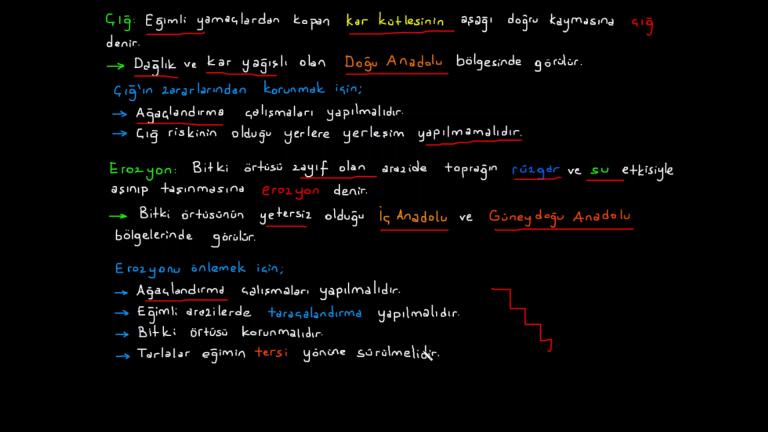 Çığ: Eğimli yamaçlardan kopan kar kütlesinin aşağı doğru kaymasına çığ
denir.
→ Dağlık ve kar yağışlı olan Doğu Anadolu bölgesinde görülür.
Çığ'ın zararlarından korunmak için;
→ Ağaçlandırma çalışmaları yapılmalıdır.
→ Çığ riskinin olduğu yerlere yerleşim yapılmamalıdır.
Erozyon: Bitki örtüsü zayıf olan arazide toprağın rüzgar ve su etkisiyle
aşınıp taşınmasına erozyon denir.
→ Bitki örtüsünün yetersiz olduğu İç Anadolu ve Güneydoğu Anadolu
bölgelerinde görülür.
Erozyonu önlemek için;
→ Ağaçlandırma çalışmaları yapılmalıdır.
→ Eğimli arazilerde taraçalandırma yapılmalıdır.
→ Bitki örtüsü korunmalıdır.
→ Tarlalar eğimin tersi yönüne sürülmelidir.